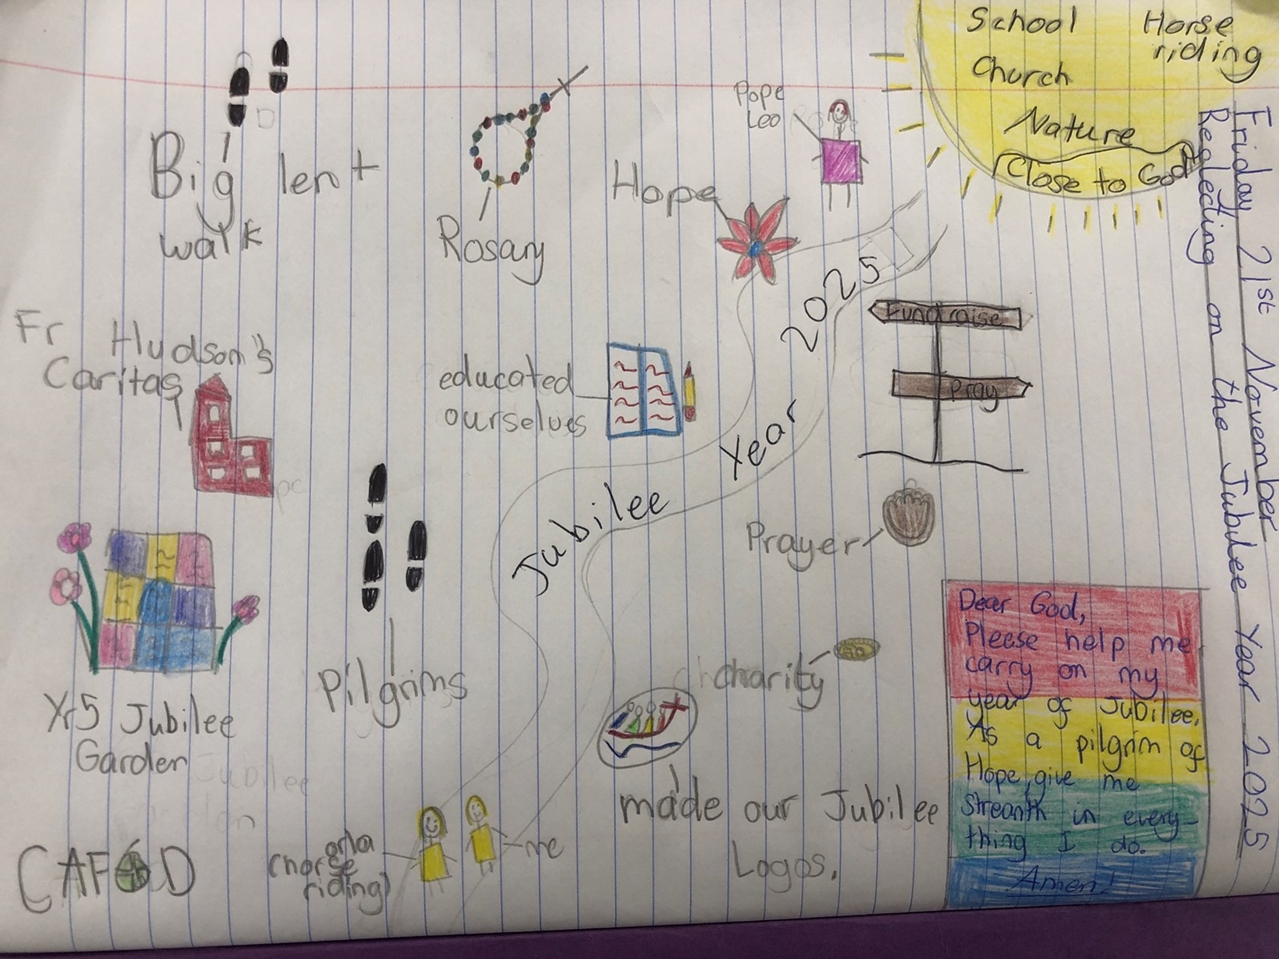 Friday 21st November
Reglecting on the Jubilee Year 2025
School Horse
riding
Church
Nature
Close to God
Big lent
walk
Rosary
Hope
Pope
Leo
Fr Hudson's
Caritas
educated
ourselves
Jubilee Year 2025
Fundraise
Pray
Prayer
Pilgrims
charity
Yr5 Jubilee
Garden
Jubilee
made our Jubilee
Logos.
CAFOD
orla
(horse
riding)
me
Dear God,
Please help me
carry on my
year of Jubilee.
As a pilgrim of
Hope, give me
streanth in every-
thing I do.
Amen!